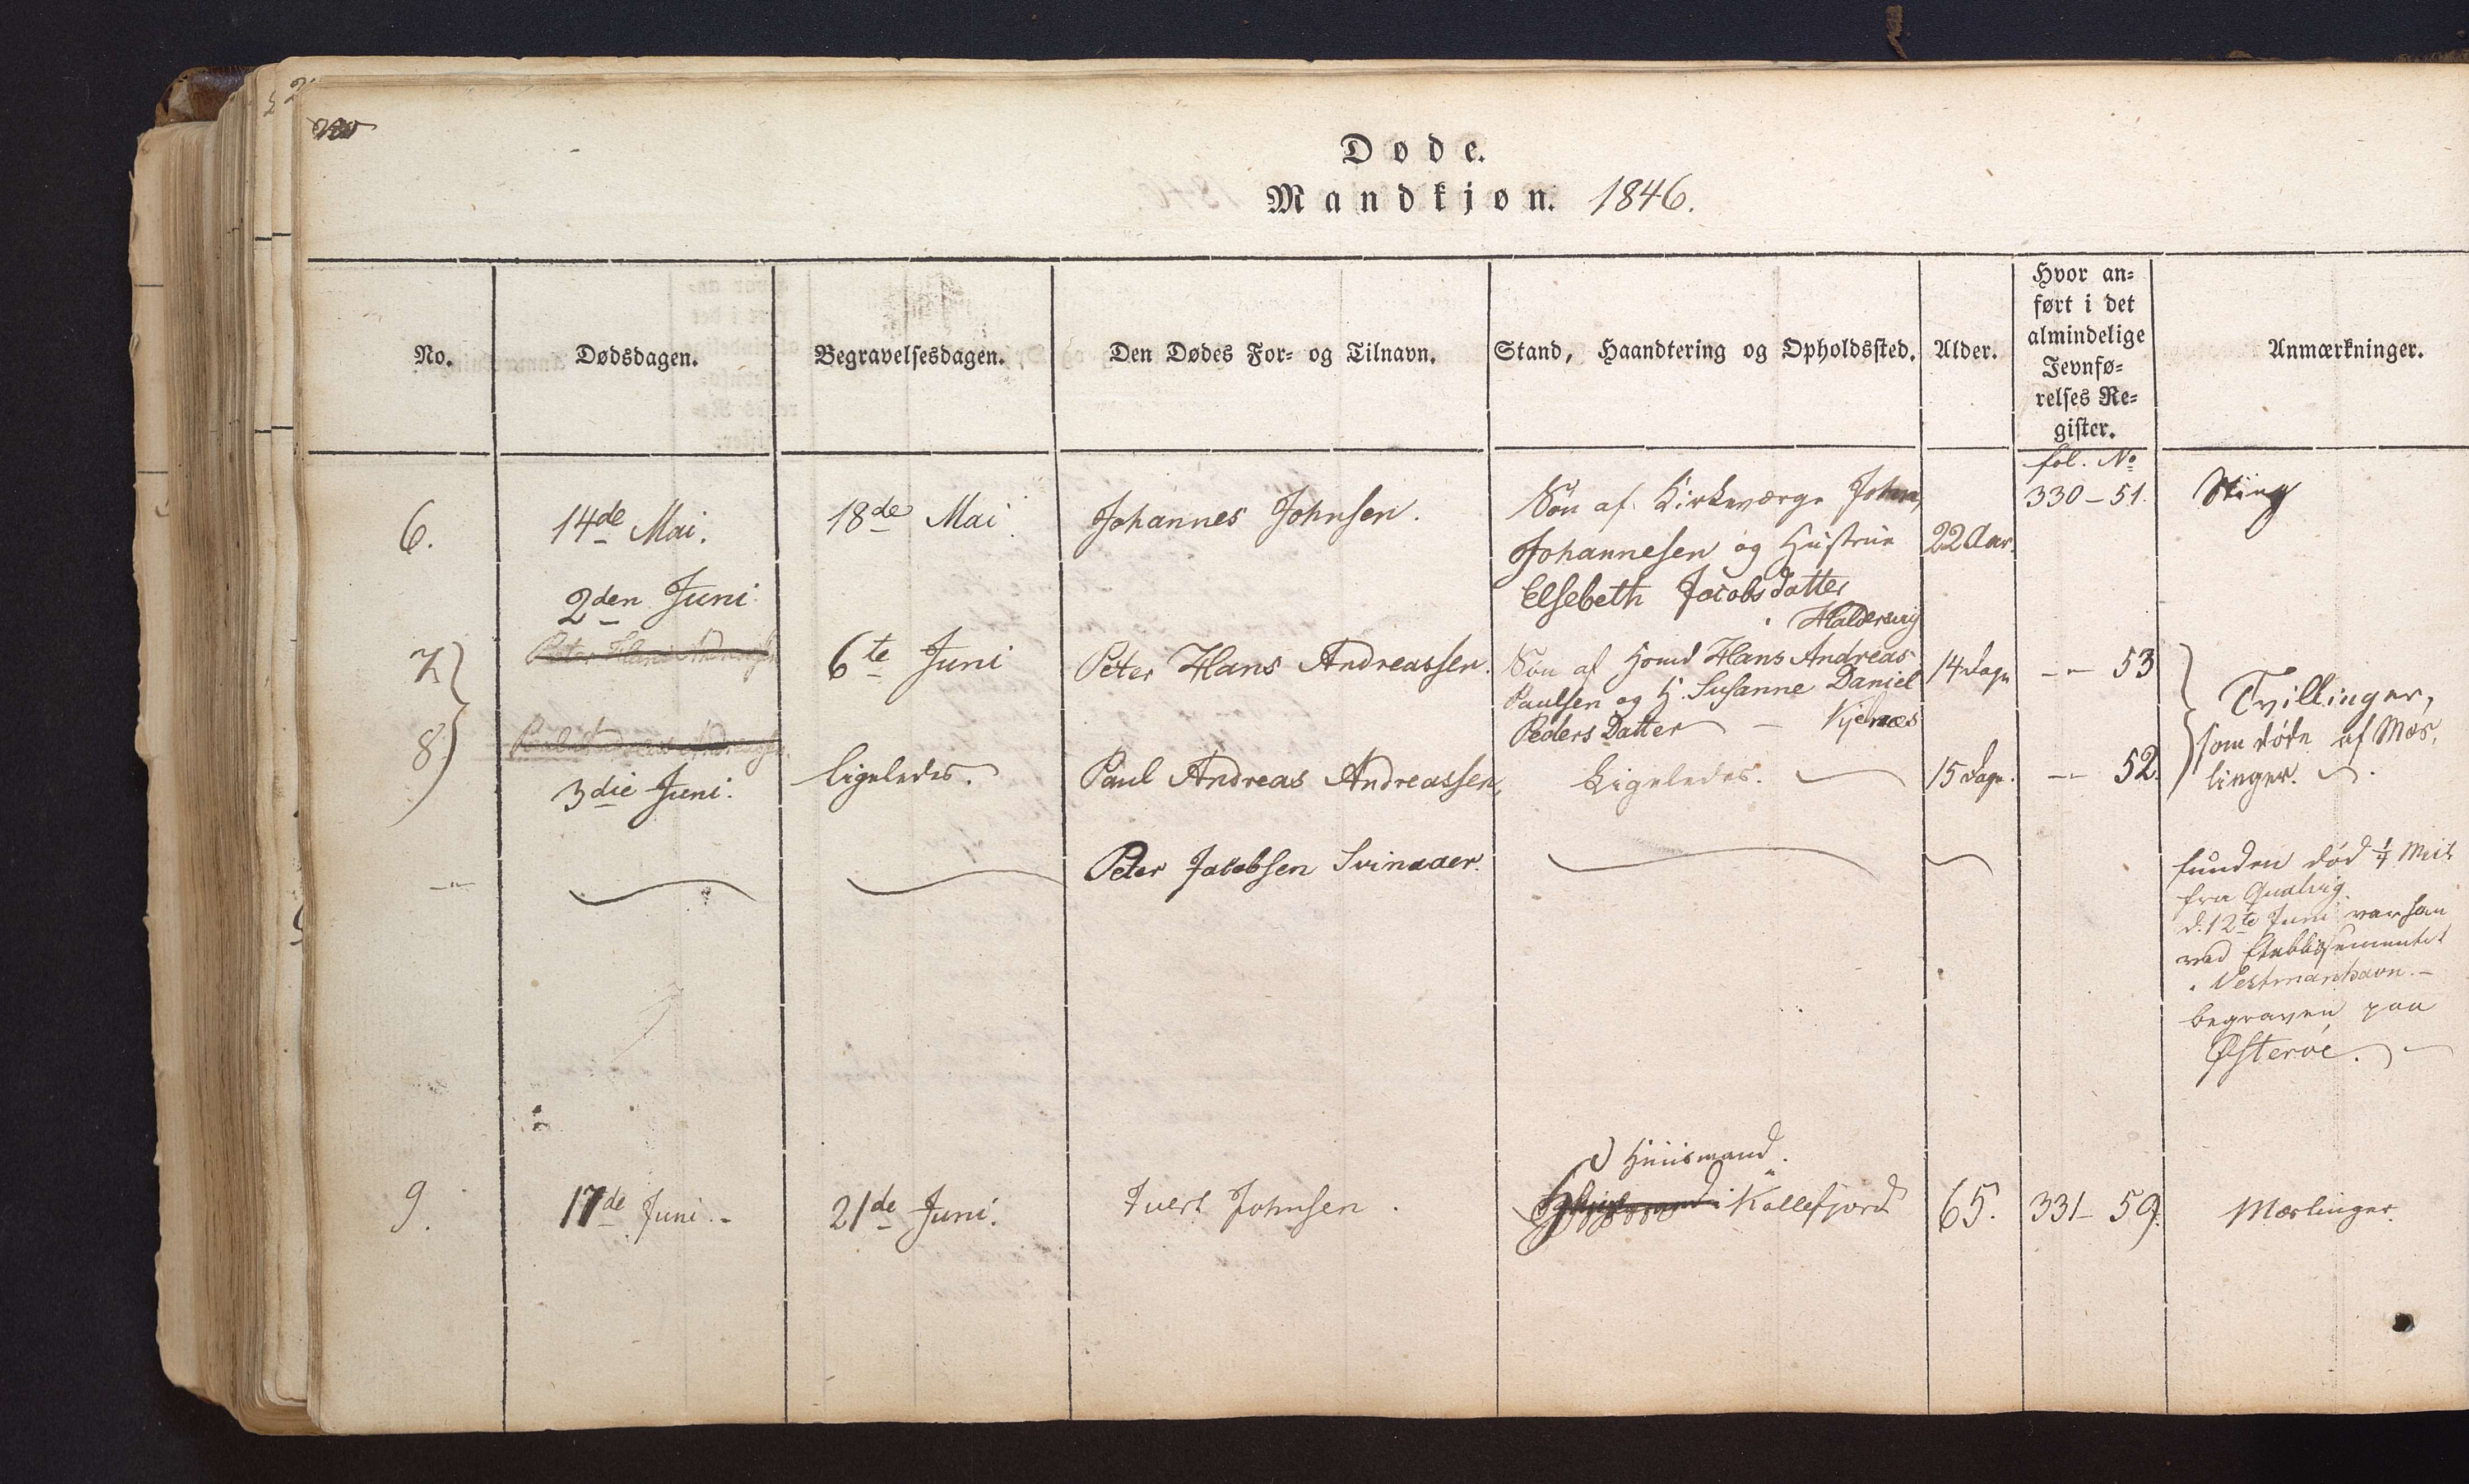 Døde.
Mandkjøn. 1846.
No.
Dødsdagen.
Begravelsesdagen.
Den Dødes For- og Tilnavn.
Stand, Haandtering og Opholdssted.
Alder.
Hvor an-
ført i det
almindelige
Jevnfø-
relses Re-
gister.
Anmærkninger.
fol. No
6.
14de Mai.
18de Mai
Johannes Johnsen.
Søn af Kirkeværge John
Johannesen og Hustrue
Elsebeth Jacobsdatter
i Haldersvig
22 Aar.
330-51.
Sting
7
2den Juni
Peter Hans Andreassen
6te Juni
Peter Hans Andreassen.
Søn af Hmd Hans Andreas
Paulsen og H. Susanne Daniel
Peders Datter — Nyenæs
14 Dage
-"- 53
Tvillinger,
som døde af Mæs-
linger.
8.
Paul Andreas Andreassen
3die Juni.
ligeledes.
Paul Andreas Andreassen,
Ligeledes.
15 Dage.
-- 52.
-"-
Peter Jacobsen Svinaaer.
funden død ¼ Miil
fra Qualvig
d. 12te Juni var han
ved Etablissementet
i Vestmanhavn.-
begraven paa
Østerøe.
9.
17de Juni.-
21de Juni.
Ivert Johnsen.
Huusmand.
i Kollefjord
65.
331- 59.
Mæslinger.